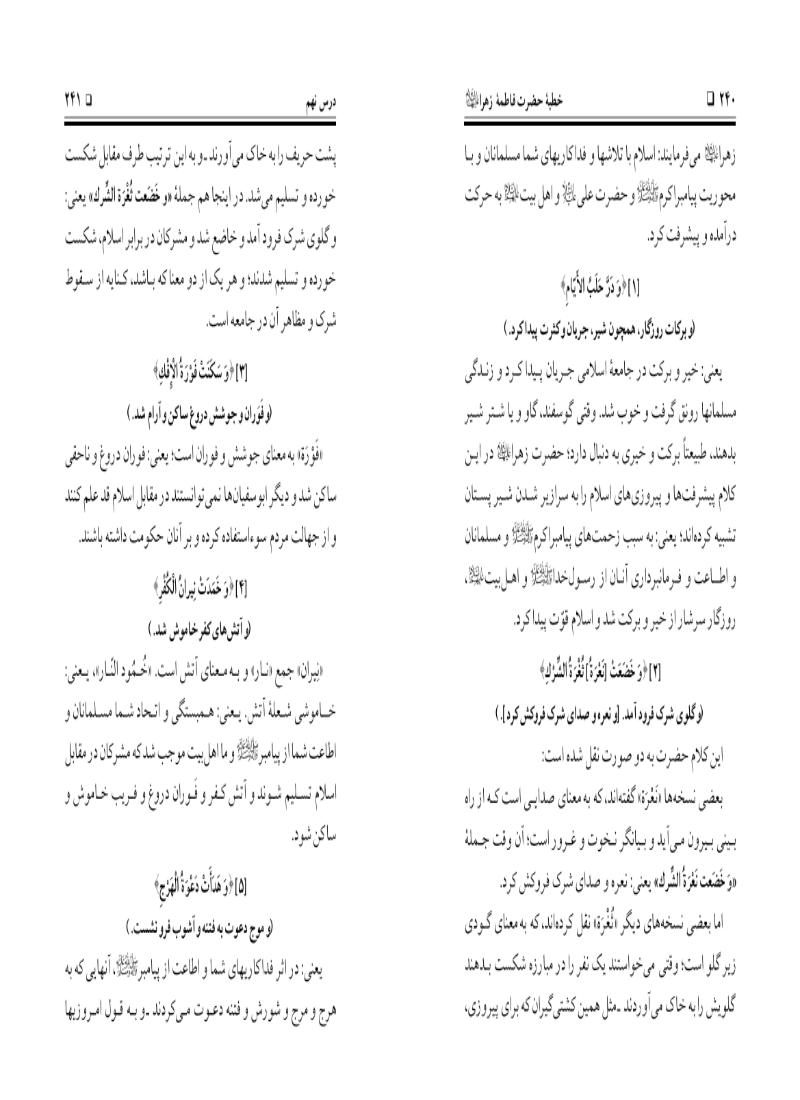 ۲۴۰ ❑ خطبهٔ حضرت فاطمهٔ زهرا
زهرا می‌فرمایند: اسلام با تلاشها و فداکاریهای شما مسلمانان و بـا
محوریت پیامبراکرم و حضرت علی و اهل بیت به حرکت
درآمده و پیشرفت کرد.
[۱] ﴿وَ دَرَّ حَلَبُ الأَيّامِ﴾
(و برکات روزگار، همچون شیر، جریان و کثرت پیدا کرد.)
یعنی: خیر و برکت در جامعهٔ اسلامی جریان پیدا کرد و زندگی
مسلمانها رونق گرفت و خوب شد. وقتی گوسفند، گاو و یا شتر شیر
بدهند، طبیعتاً برکت و خیری به دنبال دارد؛ حضرت زهرا در این
کلام پیشرفت‌ها و پیروزی‌های اسلام را به سرازیر شدن شیر پستان
تشبیه کرده‌اند؛ یعنی: به سبب زحمت‌های پیامبراکرم و مسلمانان
و اطاعت و فرمانبرداری آنان از رسول‌خدا و اهل‌بیت،
روزگار سرشار از خیر و برکت شد و اسلام قوّت پیدا کرد.
[۲] ﴿وَ خَضَعَتْ [نَعْرَةُ] ثُغْرَةُ الشِّرْكِ﴾
(و گلوی شرک فرود آمد. [و نعره و صدای شرک فروکش کرد].)
این کلام حضرت به دو صورت نقل شده است:
بعضی نسخه‌ها «نَعْرَة» گفته‌اند، که به معنای صدایی است که از راه
بینی بیرون می‌آید و بیانگر نخوت و غرور است؛ آن وقت جملهٔ
«وَ خَضَعت نَعْرَةُ الشِّرك» یعنی: نعره و صدای شرک فروکش کرد.
اما بعضی نسخه‌های دیگر «ثُغْرَة» نقل کرده‌اند، که به معنای گودی
زیر گلو است؛ وقتی می‌خواستند یک نفر را در مبارزه شکست بدهند
گلویش را به خاک می‌آوردند ـ مثل همین کشتی‌گیران که برای پیروزی،
درس نهم ❑ ۲۴۱
پشت حریف را به خاک می‌آورند ـ و به این ترتیب طرف مقابل شکست
خورده و تسلیم می‌شد. در اینجا هم جملهٔ «و خَضَعت ثُغْرَة الشِّرك» یعنی:
و گلوی شرک فرود آمد و خاضع شد و مشرکان در برابر اسلام، شکست
خورده و تسلیم شدند؛ و هر یک از دو معنا که باشد، کنایه از سقوط
شرک و مظاهر آن در جامعه است.
[۳] ﴿وَ سَكَنَتْ فَوْرَةُ الْإِفْكِ﴾
(و فَوَران و جوشش دروغ ساکن و آرام شد.)
«فَوْرَة» به معنای جوشش و فوران است؛ یعنی: فوران دروغ و ناحقی
ساکن شد و دیگر ابوسفیان‌ها نمی‌توانستند در مقابل اسلام قد علم کنند
و از جهالت مردم سوءاستفاده کرده و بر آنان حکومت داشته باشند.
[۴] ﴿وَ خَمَدَتْ نِيرانُ الْكُفْرِ﴾
(و آتش‌های کفر خاموش شد.)
«نِیران» جمع «نار» و به معنای آتش است. «خُمُود النّار»، یعنی:
خاموشی شعلهٔ آتش. یعنی: همبستگی و اتحاد شما مسلمانان و
اطاعت شما از پیامبر و ما اهل‌بیت موجب شد که مشرکان در مقابل
اسلام تسلیم شوند و آتش کفر و فَوران دروغ و فریب خاموش و
ساکن شود.
[۵] ﴿وَ هَدَأَتْ دَعْوَةُ الْهَرَجِ﴾
(و موج دعوت به فتنه و آشوب فرو نشست.)
یعنی: در اثر فداکاریهای شما و اطاعت از پیامبر، آنهایی که به
هرج و مرج و شورش و فتنه دعوت می‌کردند ـ و به قول امروزیها